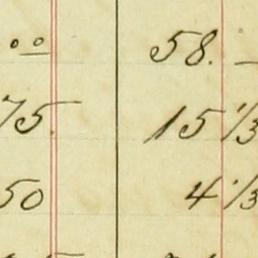 00 58.
75 15 1/3
50 4 1/3